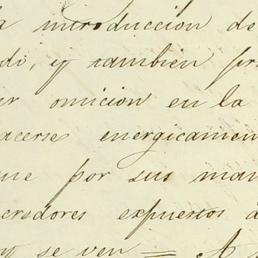 la introduccion de
di, y tambien pr
er omicion en la
acerse energicamen
que por sus man
creedores expuestos a
y se ven = A